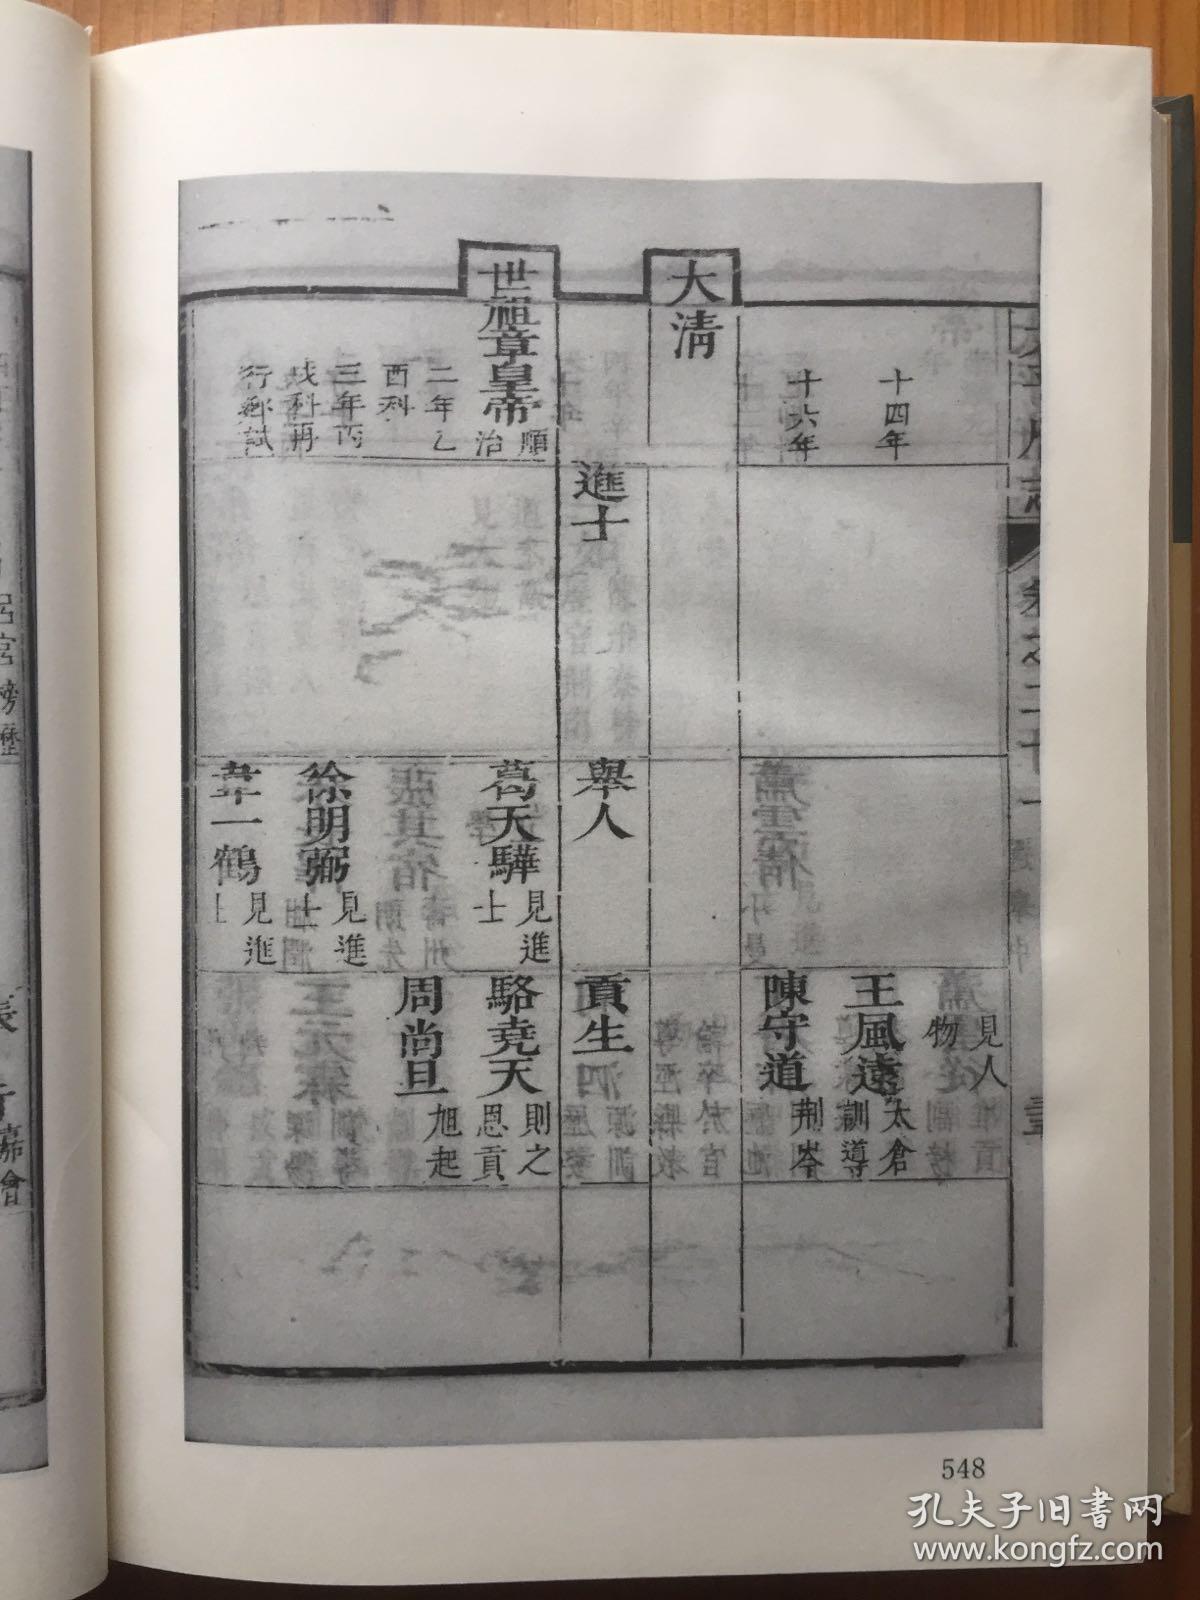 十四年
十六年
見人
物
王風遠
太倉
訓導
陳守道
荆岑
大清
進士
舉人
貢生
世祖章皇帝
順
治
二年乙
酉科
三年丙
戌科再
行鄉試
葛天驊
見進
士
徐明弼
見進
士
韋一鶴
見進
士
駱堯天
則之
恩貢
周尚旦
旭起
548
孔夫子旧书网
www.kongfz.com